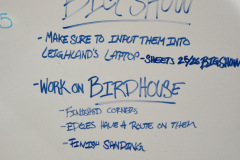 5
BIG SHOW
- MAKE SURE TO INPUT THEM INTO
LEIGHLAND'S LAPTOP - SHEETS 25/26 BIG SHOW
- WORK ON BIRDHOUSE
- FINISHED CORNERS
- EDGES HAVE A ROUTE ON THEM
- FINISH SANDING